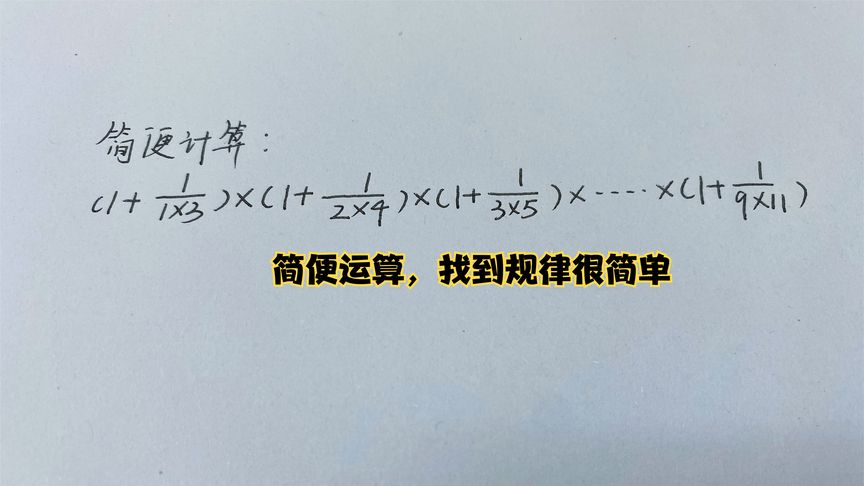 简便计算：
(1+1/1×3)×(1+1/2×4)×(1+1/3×5)×·····×(1+1/9×11)
简便运算，找到规律很简单